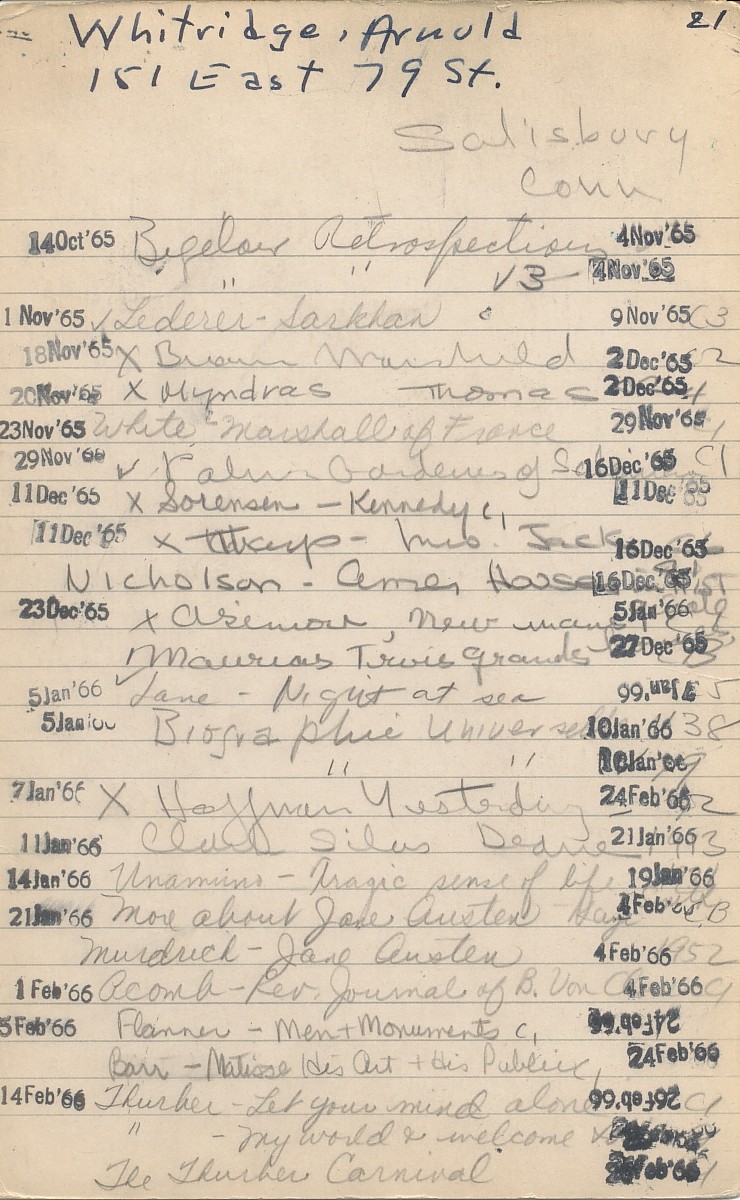 Whitridge, Arnold 21
151 East 79 St.
Salisbury
Conn
14 Oct '65 Bigelow Retrospections 4 Nov '65
" " v3 4 Nov '65
1 Nov '65 ✓ Lederer - Sarkhan 9 Nov '65 C3
18 Nov '65 X 2 Dec '65
20 Nov '65 X Thomas 2 Dec '65
23 Nov '65 White - Marshall of France 29 Nov '65
29 Nov '65 ✓ Gardener of 16 Dec '65 C1
11 Dec '65 X Sorensen - Kennedy c1 11 Dec '65
11 Dec '65 X - Mrs. Jack 16 Dec '65
Nicholson - Amer Houses 16 Dec '65
23 Dec '65 X Asimov, New 5 Jan '66
✓ Maurois Trois grands 27 Dec '65
5 Jan '66 Lane - Night at sea 7 Jan '66
5 Jan '66 Biographie Universelle 10 Jan '66 38
" " 10 Jan '66
7 Jan '66 X Hoffman Yesterday 24 Feb '66
11 Jan '66 Clark Silas Deane 21 Jan '66
14 Jan '66 Unamuno - Tragic sense of life 19 Jan '66
21 Jan '66 More about Jane Austen 4 Feb '66
Murdrich - Jane Austen 4 Feb '66 1952
1 Feb '66 Acomb - Rev. Journal of B. Von 4 Feb '66
5 Feb '66 Flanner - Men + Monuments c1 24 Feb '66
Barr - Matisse His Art + His Public 24 Feb '66
14 Feb '66 Thurber - Let your mind alone 26 Feb '66 C1
" - My world & welcome
The Thurber Carnival 26 Feb '66